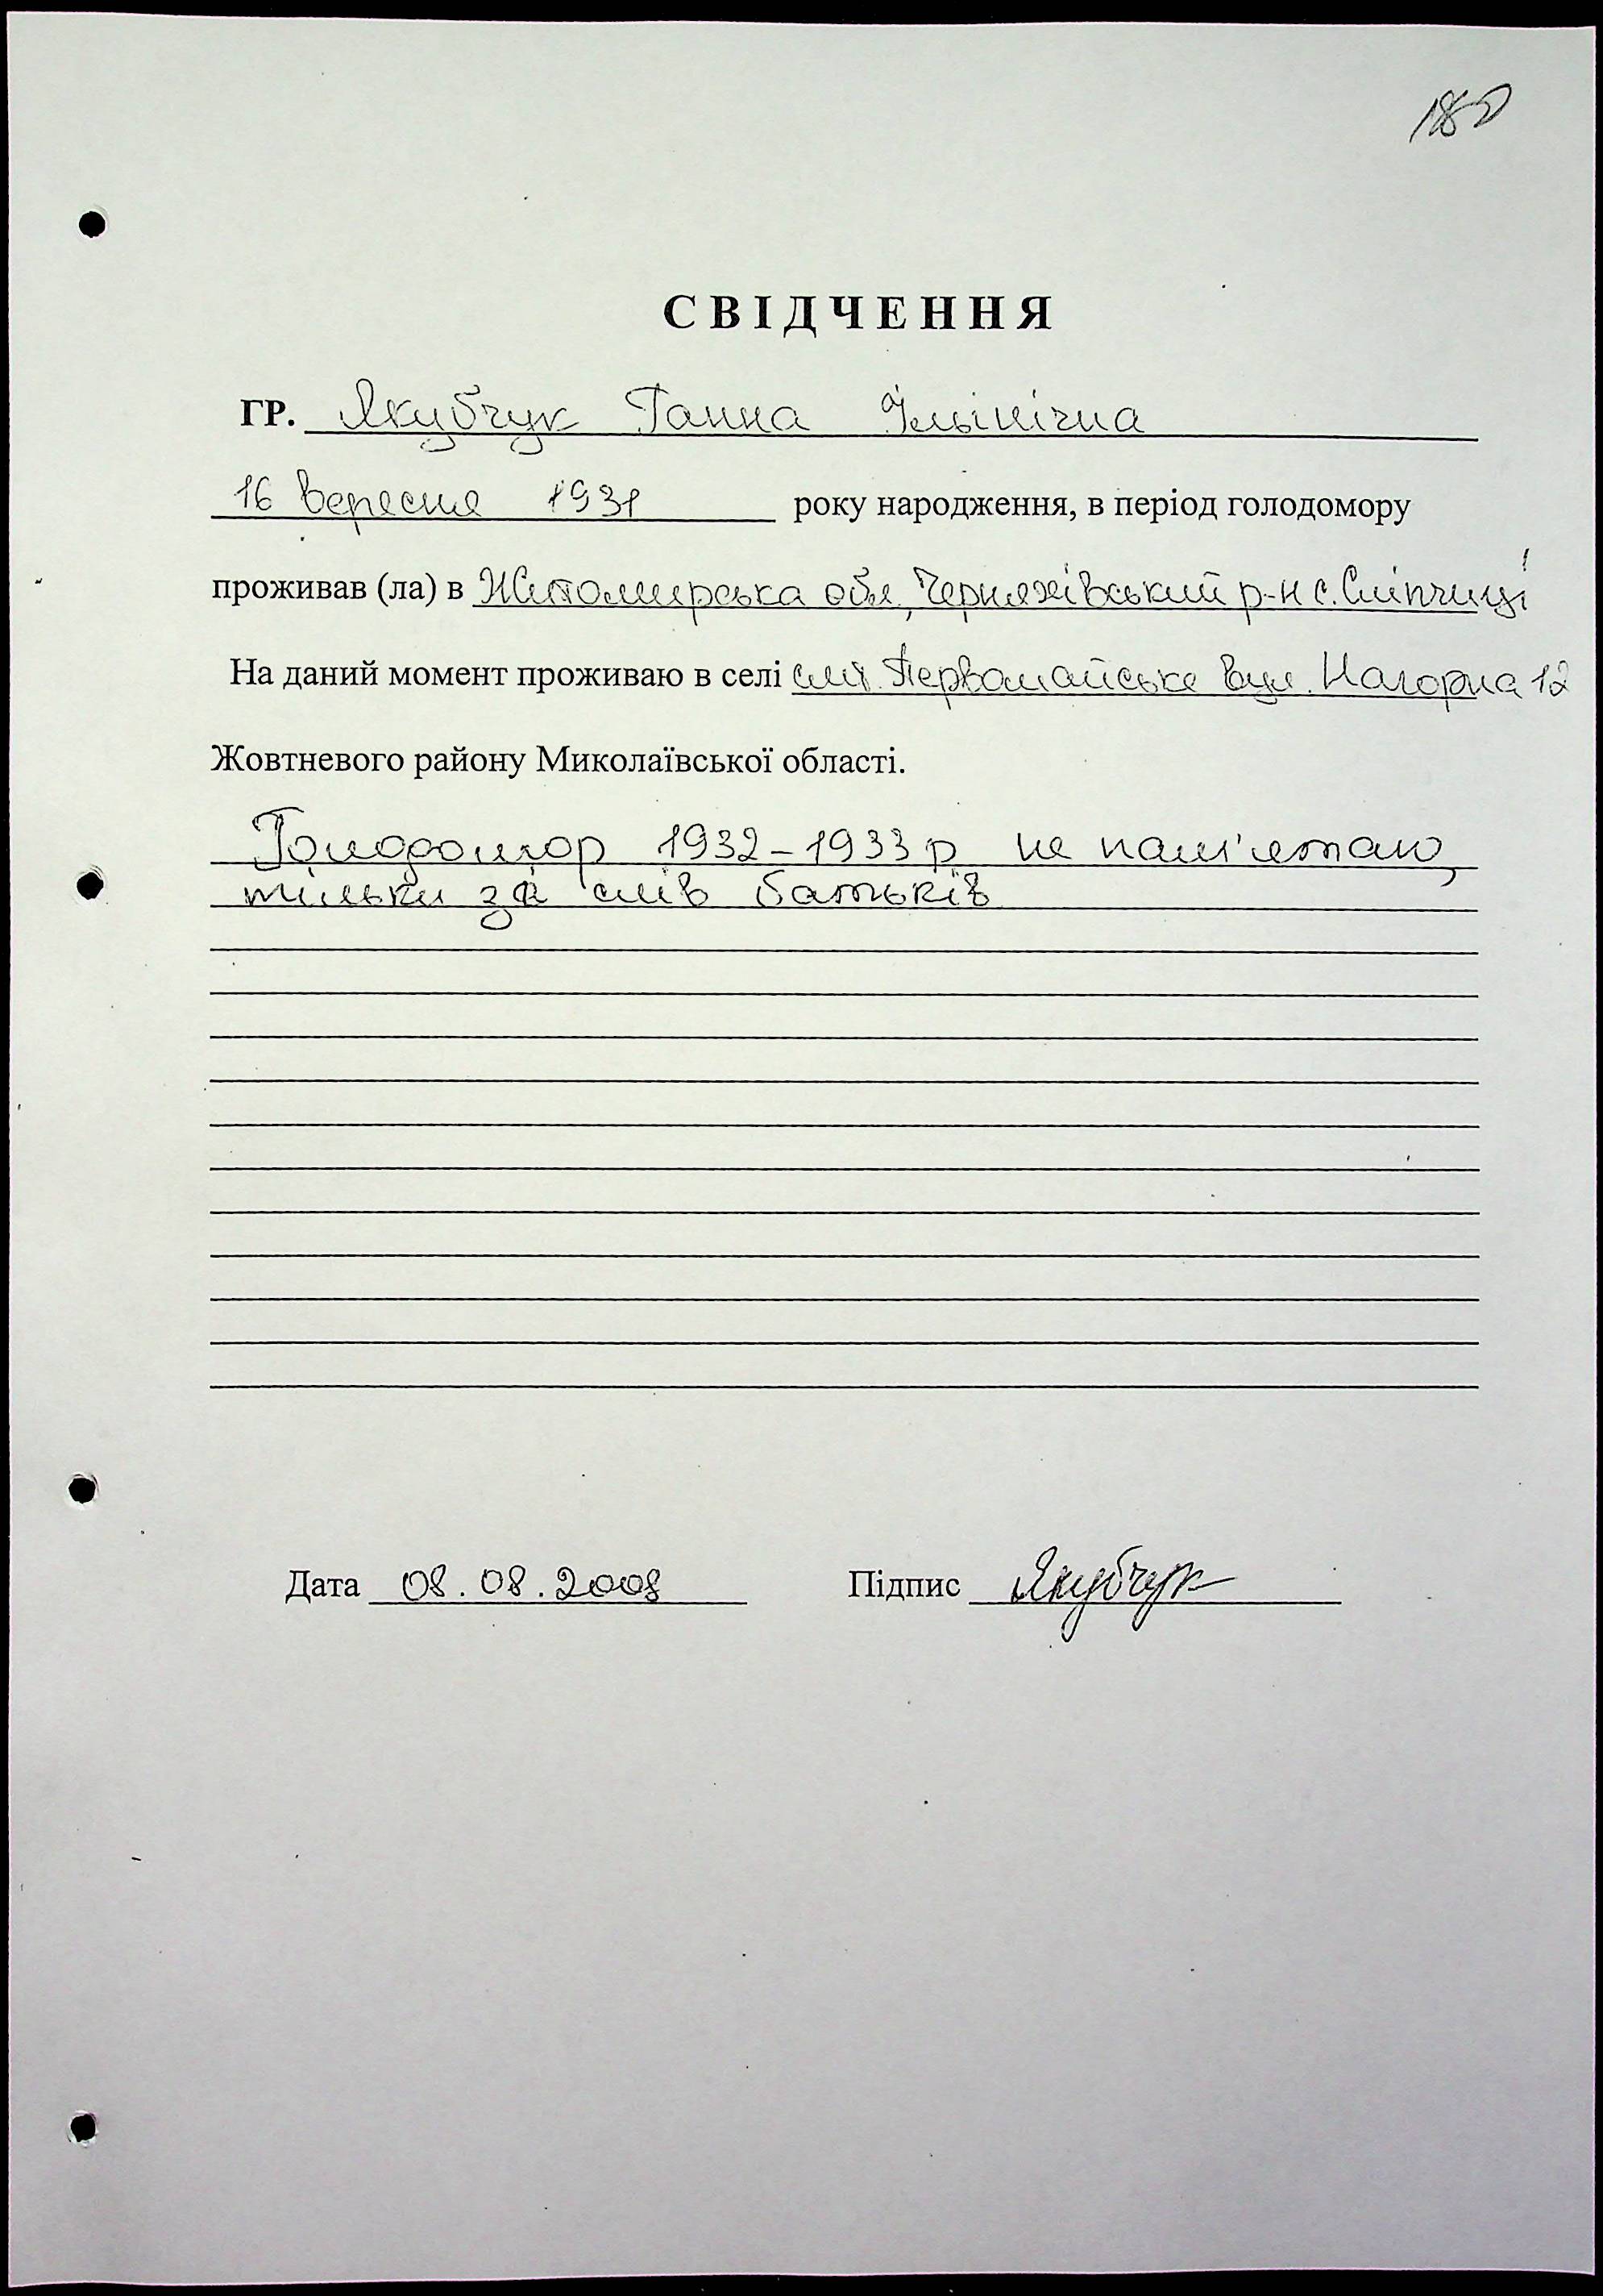 180
СВІДЧЕННЯ
ГР. Якубчук Ганна Іллінічна
16 вересня 1931 року народження, в період голодомору
проживав (ла) в Житомирська обл., Черняхівський р-н с. Сліпчиці
На даний момент проживаю в селі смт. Первомайське вул. Нагорна 12
Жовтневого району Миколаївської області.
Голодомор 1932-1933 р не пам'ятаю,
тільки за слів батьків
Дата 08.08.2008 Підпис Якубчук